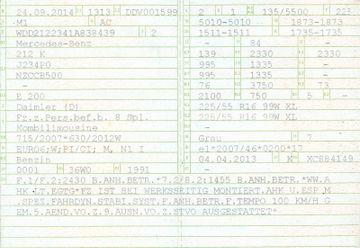 24.09.2014 1313 DDV001599 2 1 135/5500 225
M1 AC 5010-5010 1873-1873
WDD2122341A838439 2 1511-1511 1735-1735
Mercedes-Benz - 84 -
212 K 139 2330 2330
J234P0 995 1335 -
NZCCB500 995 1335 -
- 76 3750 73
E 200 2100 750 5 -
Daimler (D) 225/55 R16 99W XL
Fz.z.Pers.bef.b. 8 Spl. 225/55 R16 99W XL
Kombilimousine -
715/2007*630/2012W Grau 7
EURO6;W;PI/CI; M, N1 I e1*2007/46*0200*17
Benzin 04.04.2013 K XC884149
0001 36W0 1991
F.1/F.2:2430 B.ANH.BETR.*7.2/8.2:1455 B.ANH.BETR.*WW.A
HK LT.EGTG*FZ IST BEI WERKSSEITIG MONTIERT.AHK U.ESP M
.SPEZ.FAHRDYN.STABI.SYST.F.ANH.BETR.F.TEMPO 100 KM/H G
EM.5.AEND.VO.Z.9.AUSN.VO.Z.STVO AUSGESTATTET*